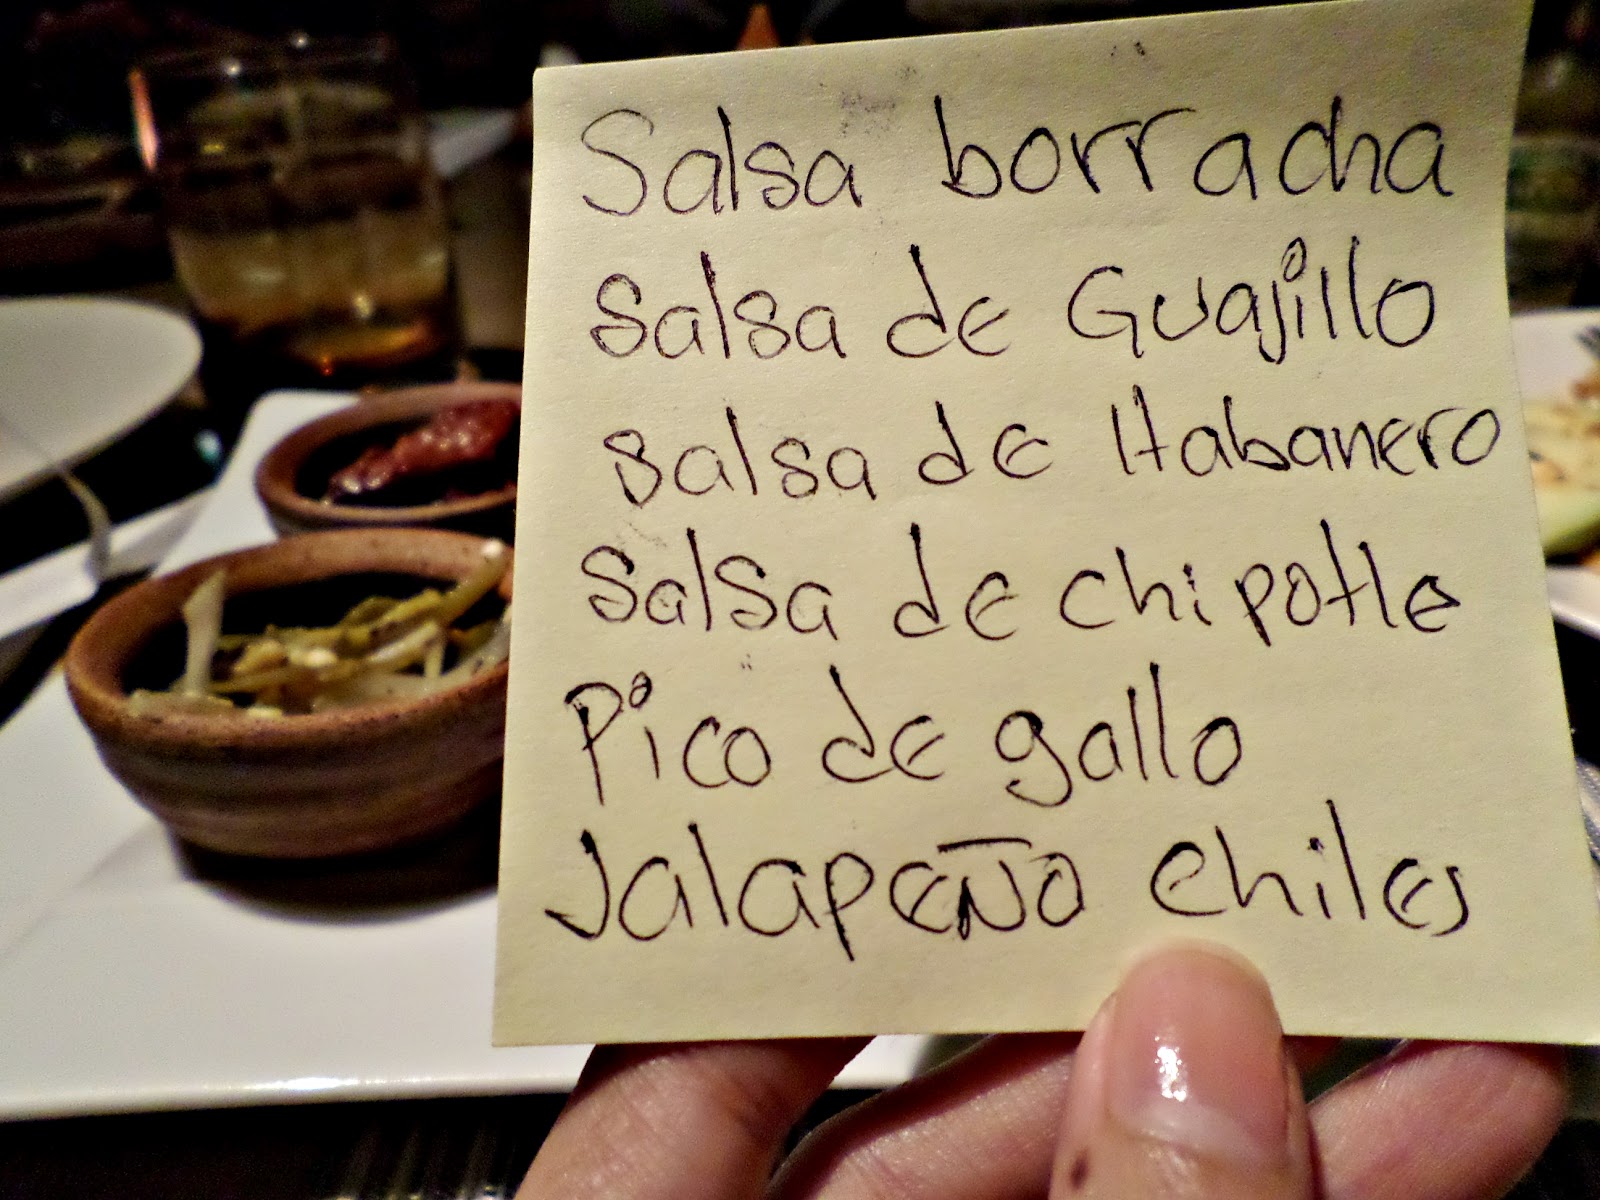 Salsa borracha
Salsa de Guajillo
Salsa de Habanero
Salsa de chipotle
Pico de gallo
Jalapeño chiles